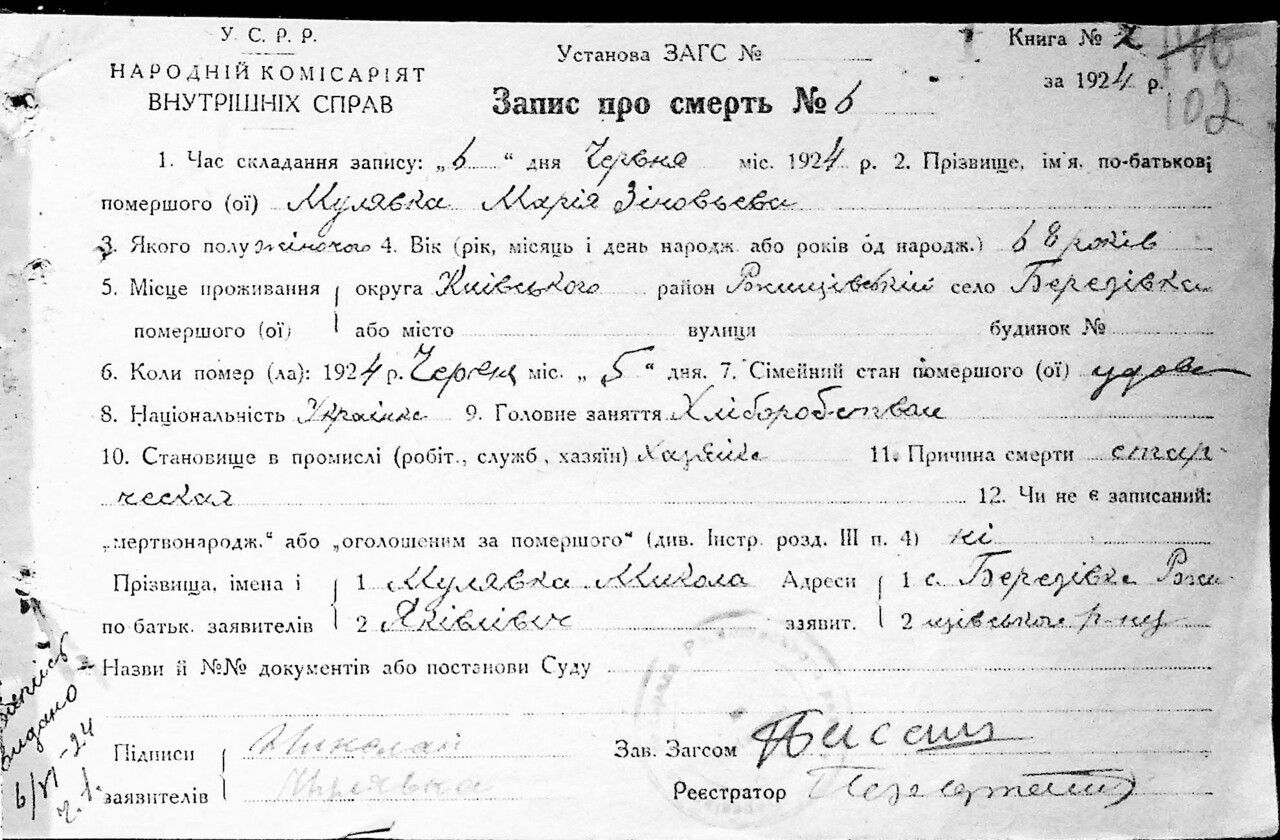 У. С. Р. Р.
НАРОДНІЙ КОМІСАРІЯТ
ВНУТРІШНІХ СПРАВ
Установа ЗАГС №
Книга № 2 146
за 1924 р. 102
Запис про смерть № 6
1. Час складання запису: „6“ дня Червня міс. 1924 р. 2. Прізвище, ім'я, по-батькові
помершого (ої) Мулявка Марія Зіновьєва
3. Якого полу жіночого 4. Вік (рік, місяць і день народж. або років од народж.) 68 років
5. Місце проживання округа Київського район Ржищівський село Березівка
помершого (ої) або місто вулиця будинок №
6. Коли помер (ла): 1924 р. Червня міс. „5“ дня. 7. Сімейний стан помершого (ої) удова
8. Національність Українка 9. Головне заняття Хліборобством
10. Становище в промислі (робіт., служб., хазяїн) Хазяйка 11. Причина смерти стар-
ческая 12. Чи не є записаний:
„мертвонародж.“ або „оголошеним за помершого“ (див. Інстр. розд. III п. 4) ні
Прізвища, імена і 1 Мулявка Микола Адреси 1 с. Березівка Ржи-
по батьк. заявителів 2 Яківлівич взявит. 2 щівського р-ну
Назви й №№ документів або постанови Суду
видано
6/VI-24
Підписи Николай Зав. Загсом
заявителів Мулявка Реєстратор